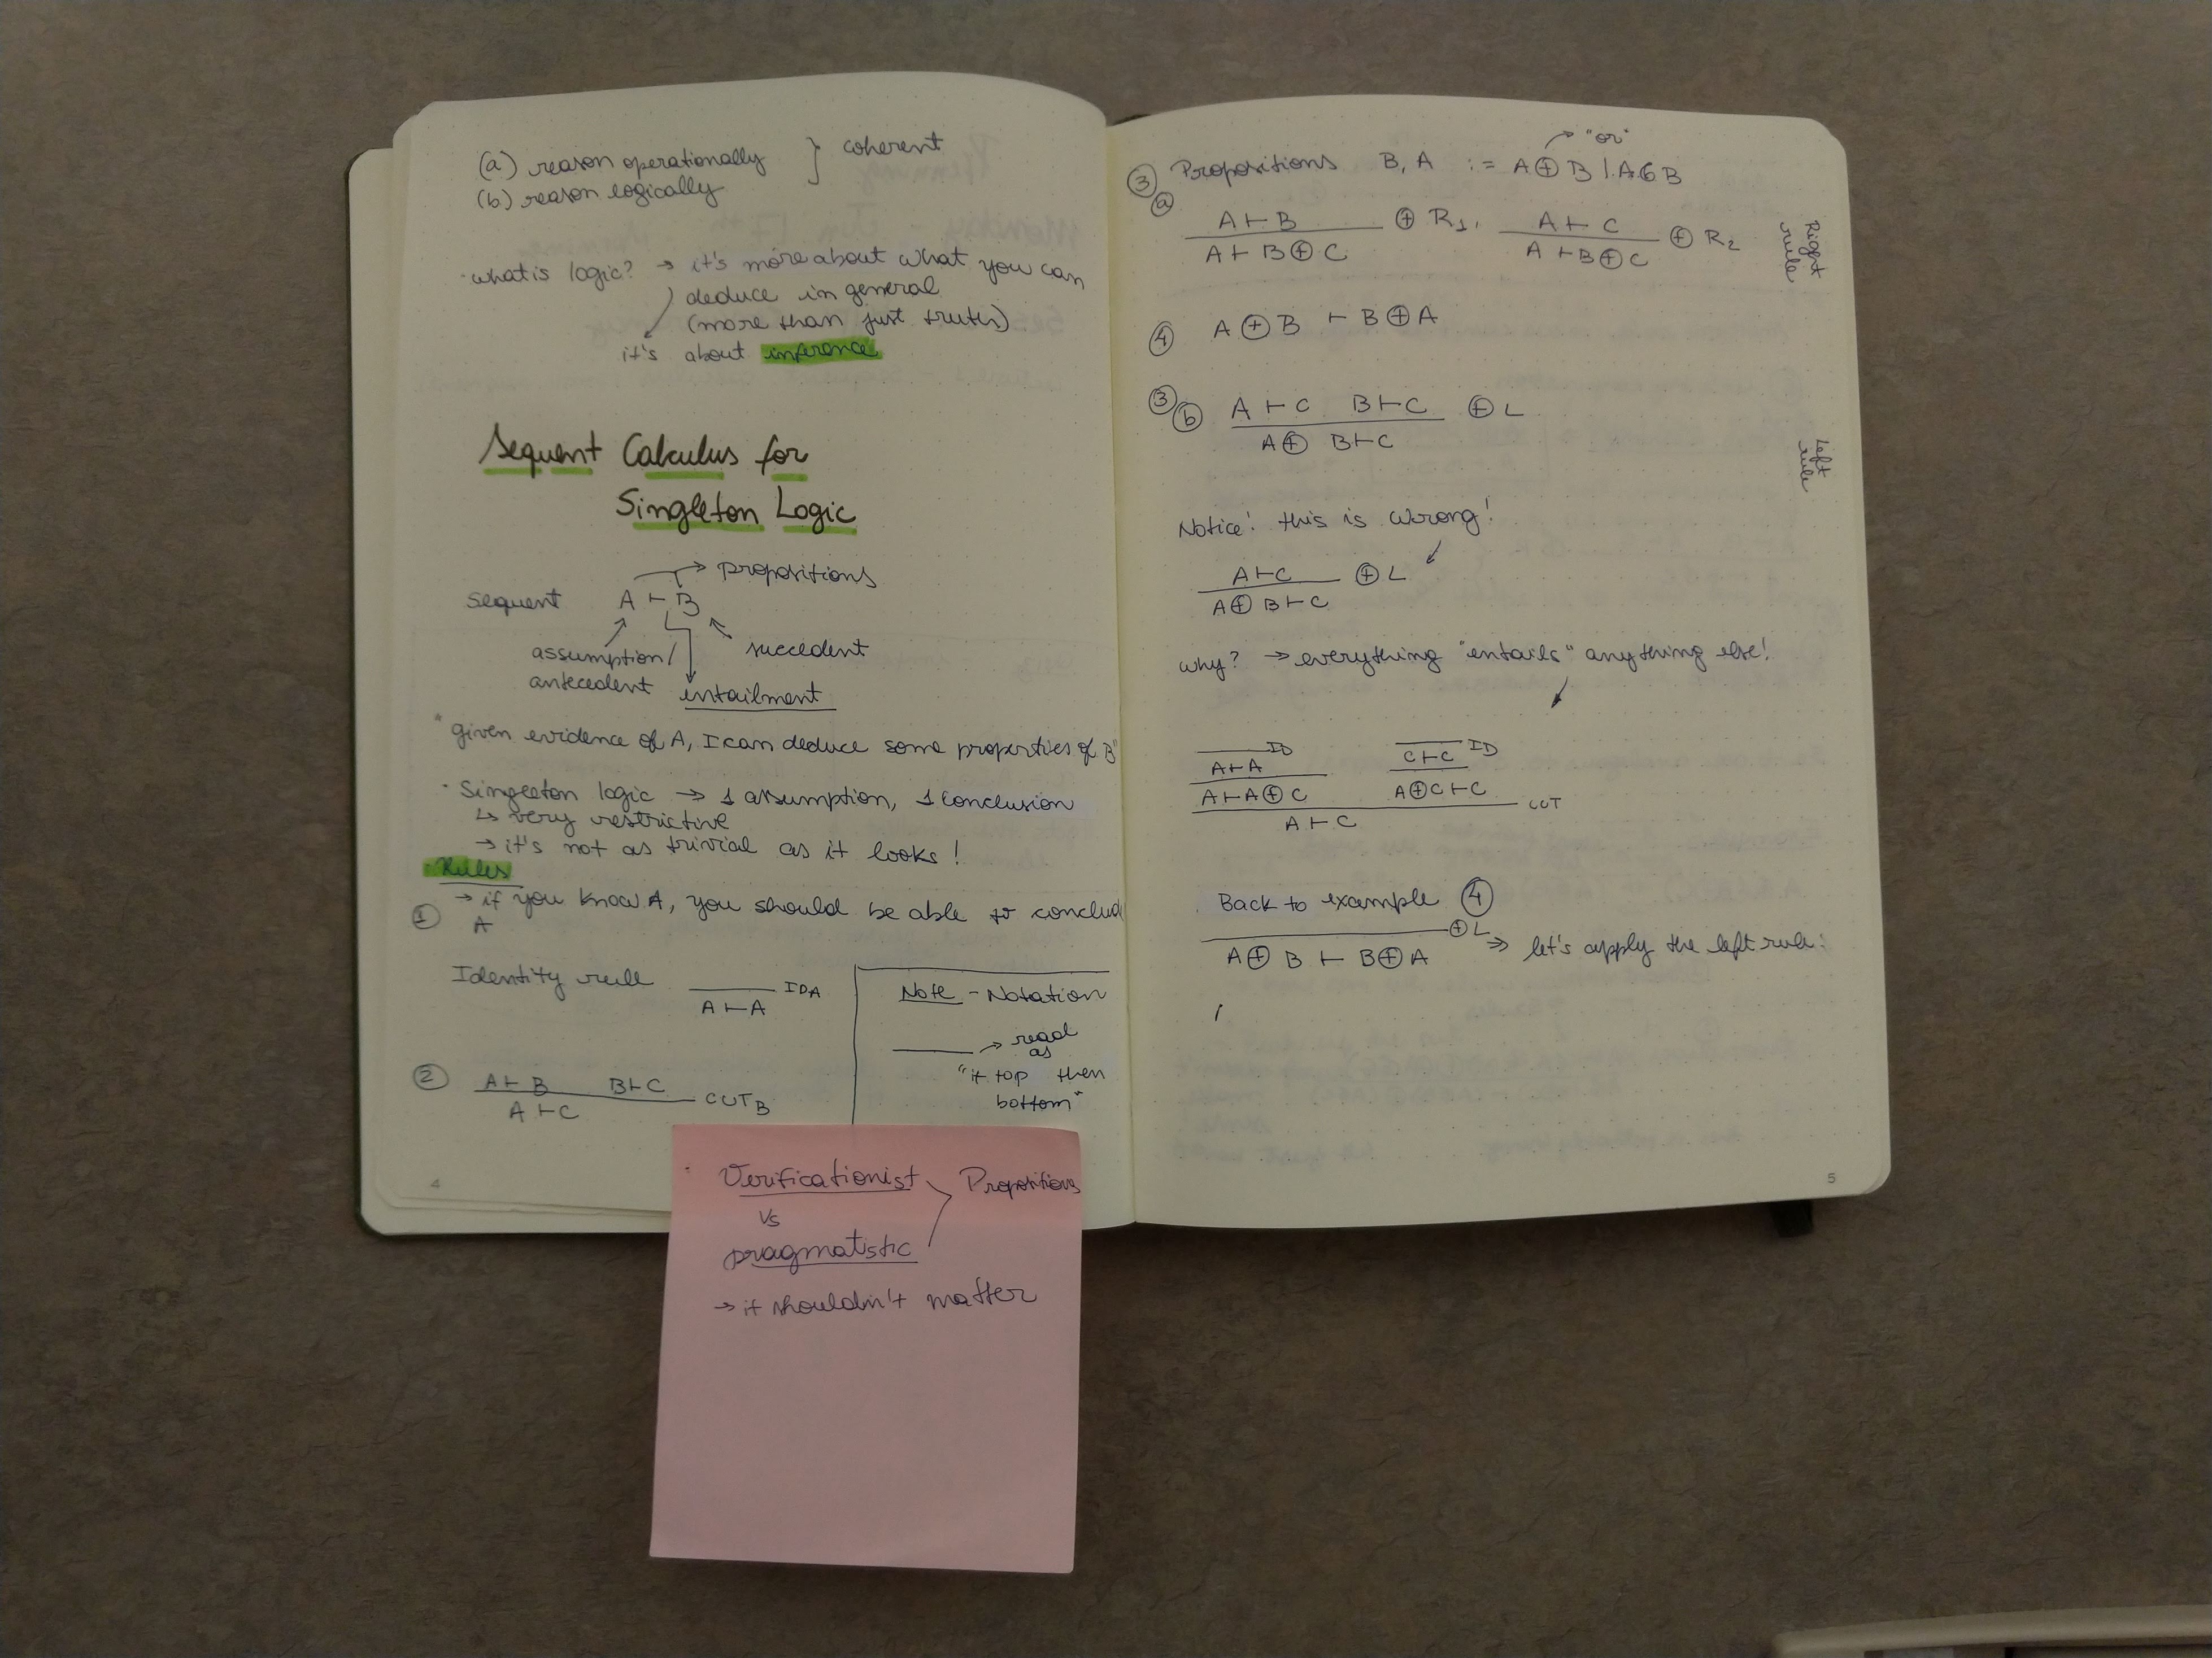 (a) reason operationally } coherent
(b) reason logically
· what is logic? → it's more about what you can
deduce in general
(more than just truths)
it's about inference
Sequent Calculus for
Singleton Logic
Sequent A ⊢ B → propositions
assumption/ succedent
antecedent entailment
"given evidence of A, I can deduce some properties of B"
· Singleton logic → 1 assumption, 1 conclusion
↳ very restrictive
→ it's not as trivial as it looks!
· Rules
① → if you know A, you should be able to conclud
A
Identity rule ――― ID_A
A ⊢ A
Note - Notation
――― → read as
"if top then
bottom"
② A ⊢ B B ⊢ C
――――――― CUT_B
A ⊢ C
4
· Verificationist
vs > Propositions
pragmatistic
→ it shouldn't matter
③ Propositions B, A := A ⊕ B | A & B
"or"
ⓐ A ⊢ B
――――――― ⊕ R₁,
A ⊢ B ⊕ C
A ⊢ C
――――――― ⊕ R₂
A ⊢ B ⊕ C
Right
rule
④ A ⊕ B ⊢ B ⊕ A
③ ⓑ A ⊢ C B ⊢ C
――――――― ⊕ L
A ⊕ B ⊢ C
Left
rule
Notice: this is wrong!
A ⊢ C
――――――― ⊕ L
A ⊕ B ⊢ C
why? → everything "entails" anything else!
――― ID ――― ID
A ⊢ A C ⊢ C
――――――― ―――――――
A ⊢ A ⊕ C A ⊕ C ⊢ C
――――――――――――――― CUT
A ⊢ C
· Back to example ④
――――――――――― ⊕ L ⇒ let's apply the left rule:
A ⊕ B ⊢ B ⊕ A
5